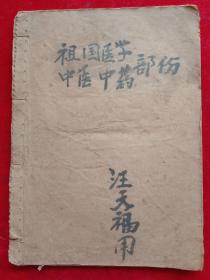 祖国医学
中医中药部份
汪天福用